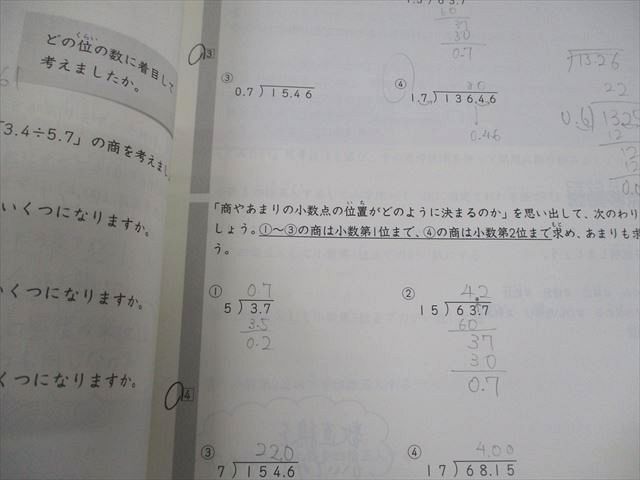 くらい
どの位の数に着目して
考えましたか。
61
「3.4÷5.7」の商を考えまし
いくつになりますか。
いくつになりますか。
くつになりますか。
60
37
30
0.7
3
③
0.7)15.46
④
80
1.7)136.46
0.46
13.26
22
0.6)1325
12
12
「商やあまりの小数点の位置がどのように決まるのか」を思い出して、次のわり
しょう。①～③の商は小数第1位まで、④の商は小数第2位まで求め、あまりも求
う。
①
0.7
5)3.7
3.5
0.2
②
4.2
15)63.7
60
37
30
0.7
4
③
22.0
7)154.6
④
4.00
17)68.15